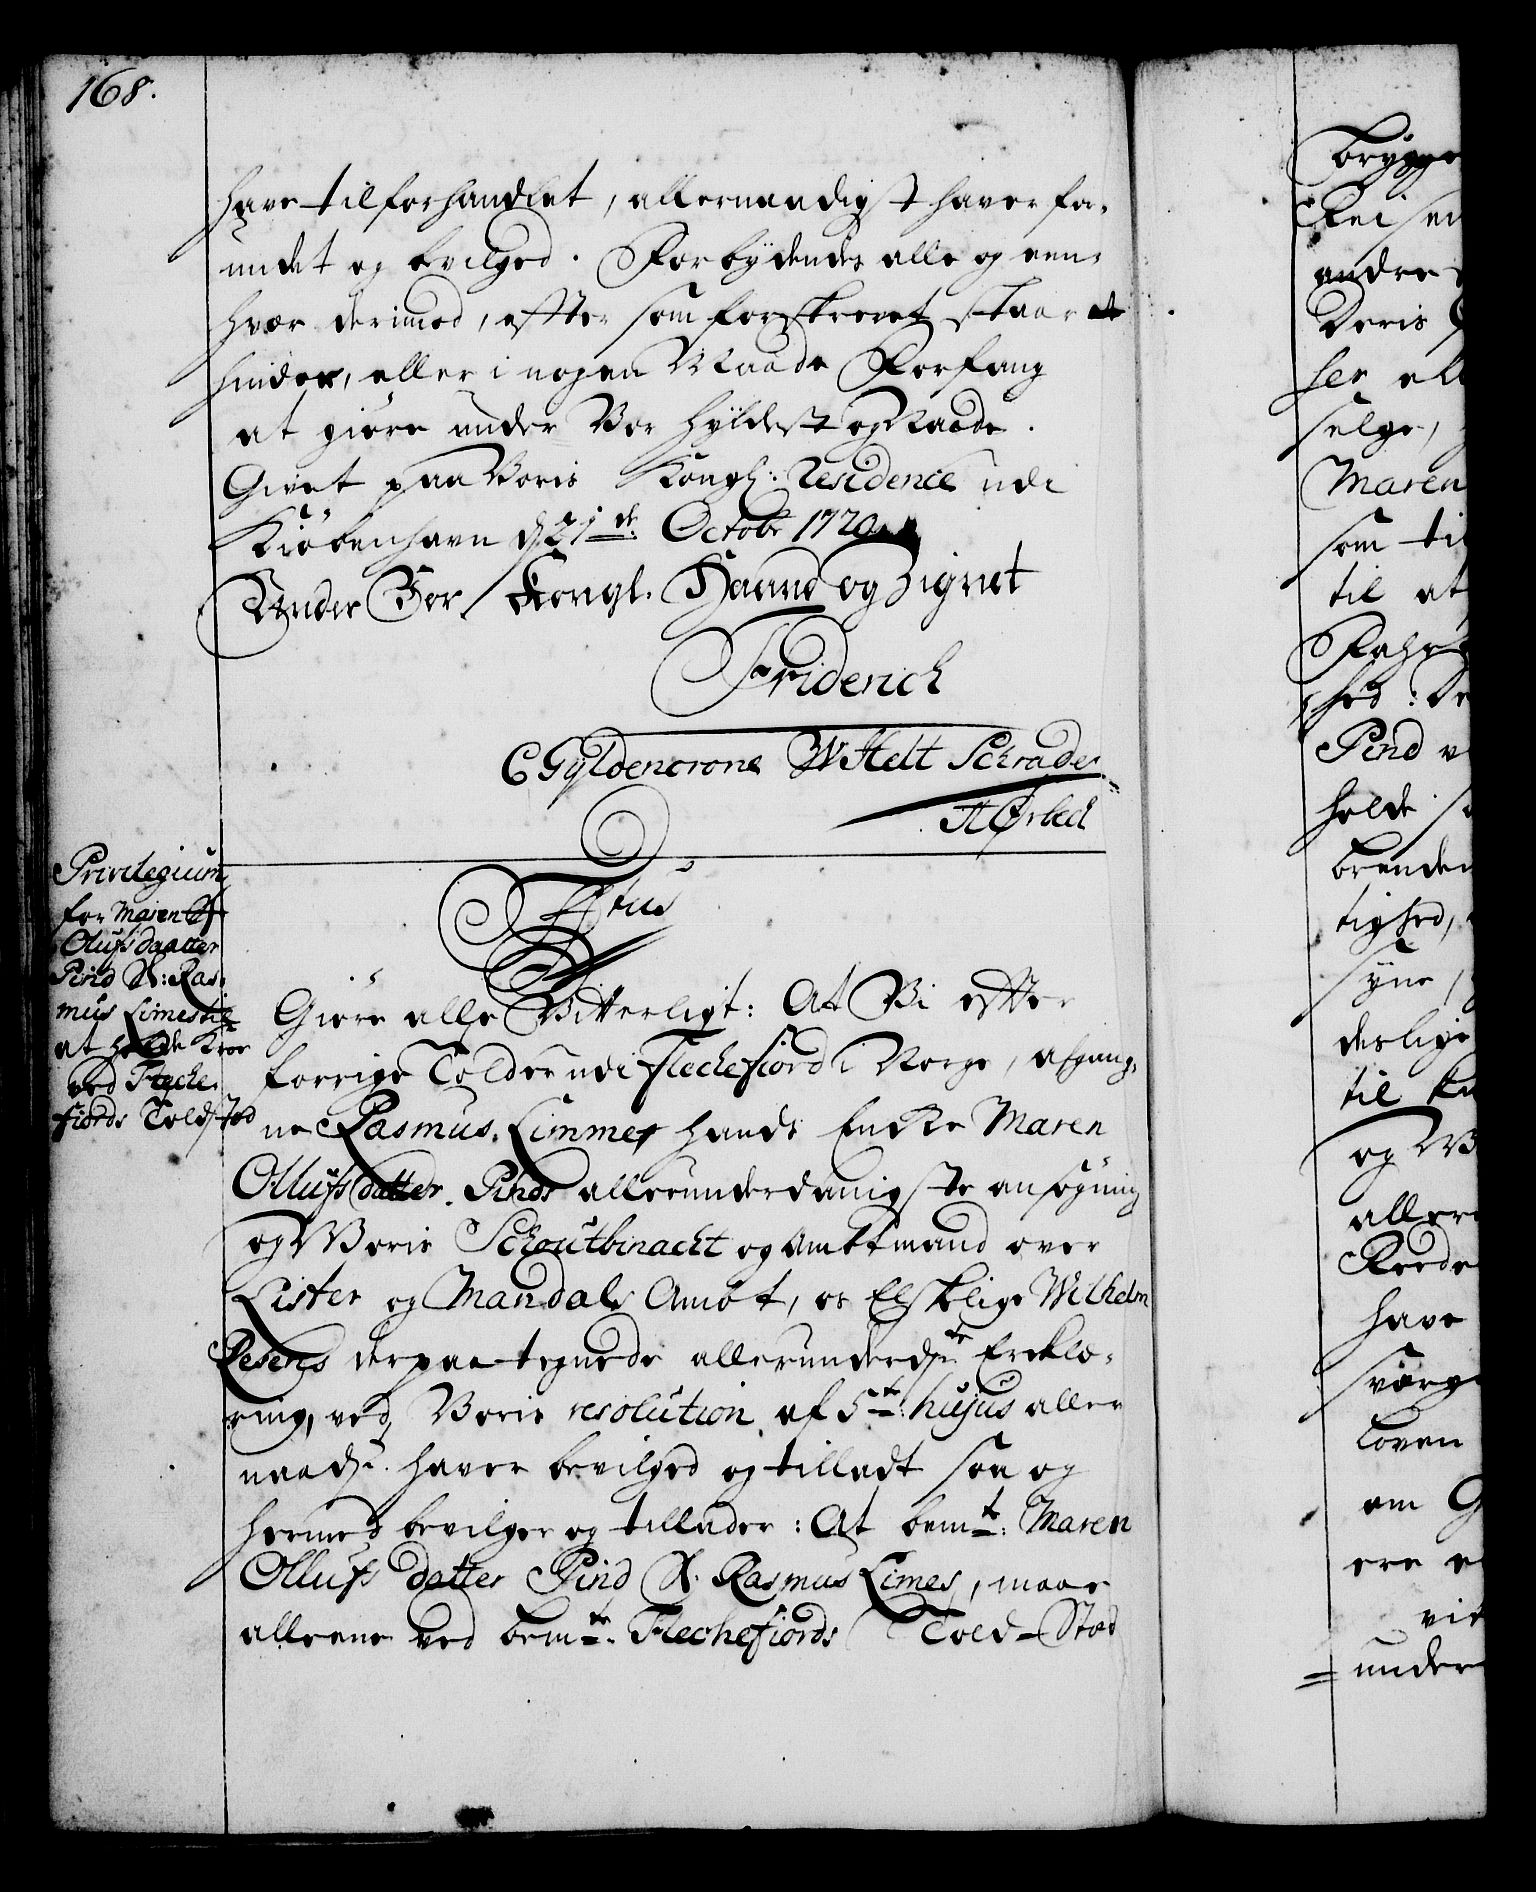 168.
have tilforhandlet, allernaadigst haver for-
undet og bevilged. Forbydendes alle og een-
hver derimod, efter som forskrevet staar at
hinder, eller i nogen Maade Forfang
at giøre under Vor Hyldest og Naade.
Givet paa Voris Kongl: Residence udi
Kiøbenhavn d 21de Octobr 1720.
Under Vor Kongl. Haand og Signet
Friderich
C Gyldencrone W Helt Schrader
H Ørbech
Privilegium
for Maren
Olufsdaatter
Pind S: Ras-
mus Limes til
at holde Kroe
ved Fleche-
fiords Told stæd
Ttus
Giøre alle Vitterligt: At Vi efter
forrige Tolder udi Flechefiord i Norge, afgang-
ne Rasmus Limmes hands Encke Maren
Ollufs datter Pinds allerunderdanigste ansøgning
og Voris Schoutbinacht og Amtmand over
Lister og Mandals Ambt, os Elskelige Wilhelm
Resens derpaa tegnede allerunderdste Erklæ-
ring, ved Voris resolution af 5te hujus aller
naadst. haver bevilged og tilladt saa og
hermed bevilger og tillader: At bemte: Maren
Ollufs datter Pind S. Rasmus Limes, maae
alleene ved bemte. Flechefiords Told-Stæd
brygge
Reisen
andre
Voris
ser ell
selge,
Maren
som til
til at
hed: De
Pind
holde
brænde
tighed,
syne,
deslige
til
og
aller
have
Loven
om
ere
vi
under